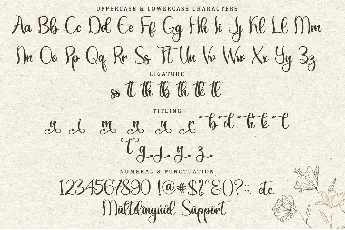 UPPERCASE & LOWERCASE CHARACTERS
Aa Bb Cc Dd Ee Ff Gg Hh Ii Jj Kk Ll Mm
Nn Oo Pp Qq Rr Ss Tt Uu Vv Ww Xx Yy Zz
LIGATURE
ss tt th
TITLING
NUMERAL & PUNCTUATION
1234567890 !@#$%&()?:; etc.
Multilingual Support